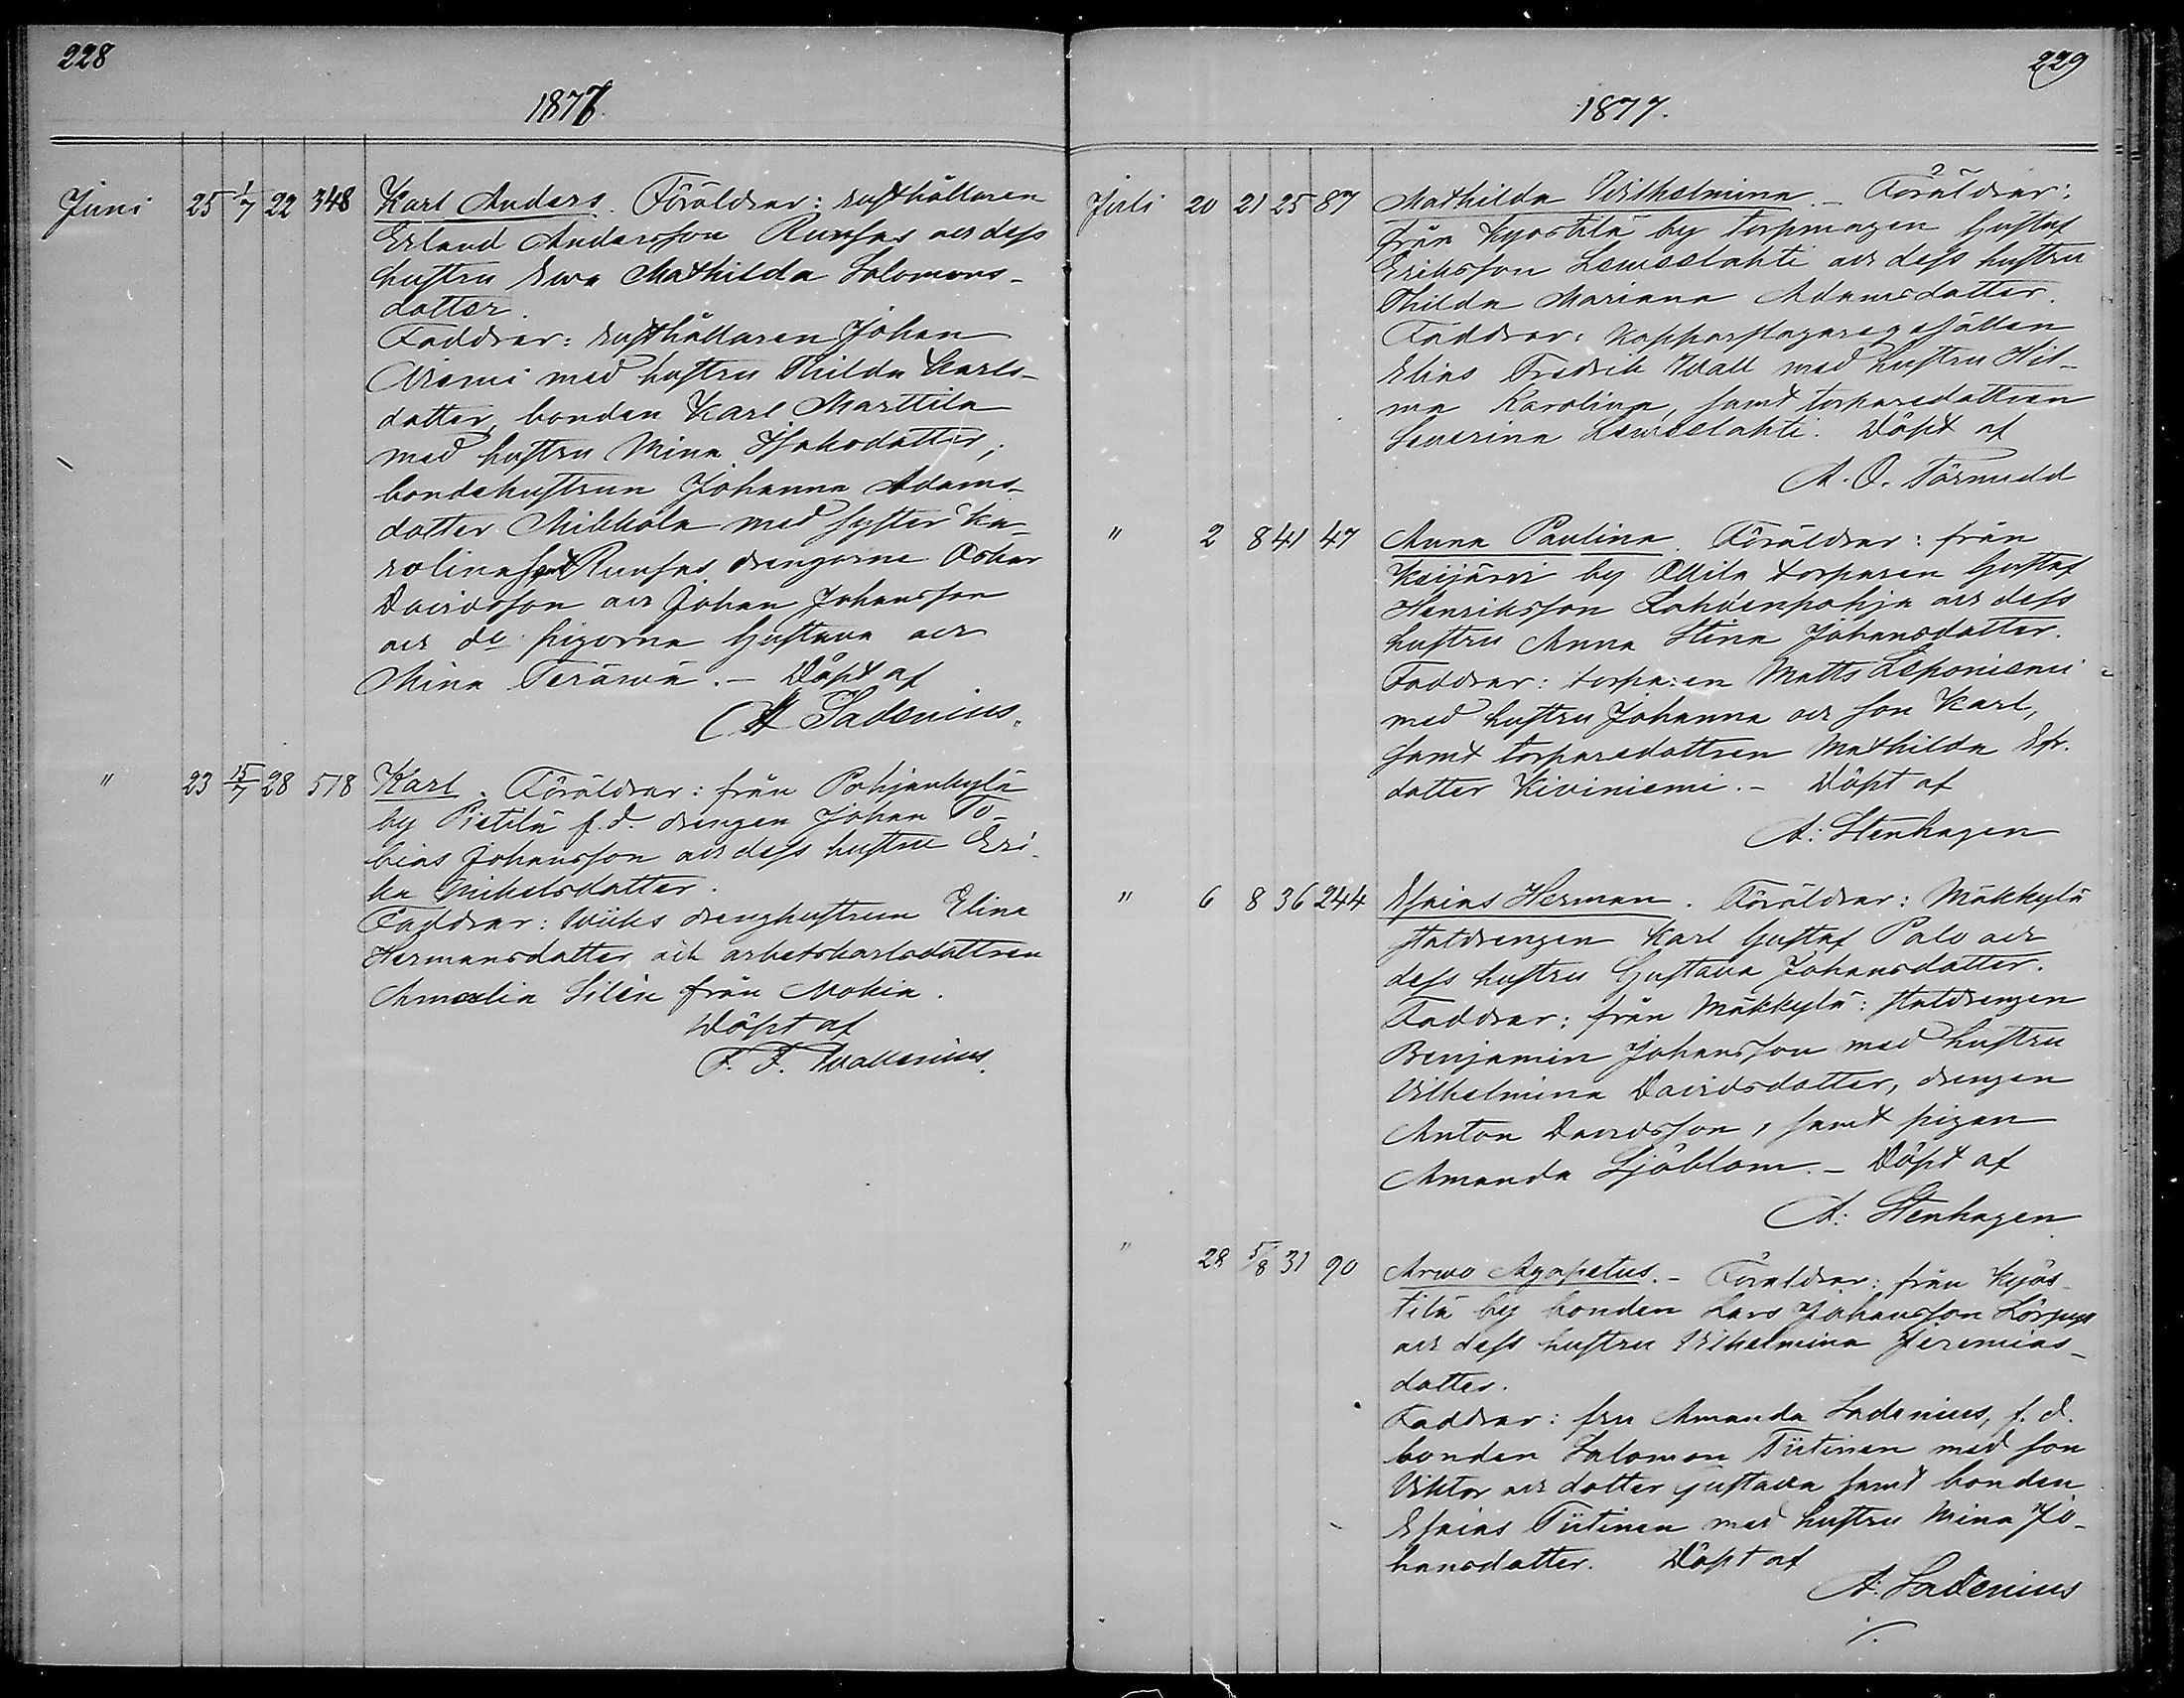 228
1877.
Juni 25 1/7 22 348 Karl Anders. Föräldrar: rusthållaren
Erland Andersson Runsas och dess
hustru Ewa Mathilda Salomons-
dotter.
Faddrar: rusthållaren Johan
med hustru Thilda Karls-
dotter, bonden Karl Marttila
med hustru Mina Isaksdotter,
bondehustrun Johanna Adams-
dotter Mikkola med syster Ka-
rolina samt Runsas drengarne Oskar
Davidsson och Johan Johansson
och do pigorna Gustava och
Mina Teräwä. - Döpt af
A Ladenius.
" 23 15/7 28 518 Karl. Föräldrar: från Pohjankylä
by Pietilä f.d. drengen Johan To-
bias Johansson och dess hustru Eri-
ka Mikelsdotter.
Faddrar: Wiiks drenghustrun Elina
Hermansdotter och arbetskarlsdottren
Amalia Silén från Nokia.
Döpt af
F. F. Wallenius.
229
1877.
Juli 20 21 25 87 Mathilda Wilhelmina. - Föräldrar:
från Kyöstilä by torpmagen Gustaf
Eriksson Lemselahti och dess hustru
Thilda Mariana Adamsdotter.
Faddrar: Kopparslagaregesällen
Elias Fredrik Wall med hustru Hil-
ma Karolina, samt torparedottren
Severina Lemselahti. Döpt af
A. O. Törnudd
" 2 8 41 47 Anna Paulina. Föräldrar: från
Keijärvi by Ollila torparen Gustaf
Henriksson Lahdenpohja och dess
hustru Anna Stina Johansdotter.
Faddrar: torparen Matts Leponiemi
med hustru Johanna och son Karl,
samt torparedottren Mathilda Efr.
dotter Kiviniemi. - Döpt af
A: Stenhagen
" 6 8 36 244 Esaias Herman. Föräldrar: Mäkkylä
statdrengen Karl Gustaf Palo och
dess hustru Gustava Johansdotter.
Faddrar: från Mäkkylä: statdrengen
Benjamin Johansson med hustru
Vilhelmina Davidsdotter, drengen
Anton Davidsson, samt pigan
Amanda Sjöblom. - Döpt af
A: Stenhagen
" 28 5/8 31 90 Arwo Agapetus. - Föräldrar: från Kyös-
tilä by bonden Lars Johansson
och dess hustru Vilhelmina Jeremias-
dotter.
Faddrar: fru Amanda Ladenius, f. d.
bonden Salomon Tiitinen med son
Viktor och dotter Gustava samt bonden
Esaias Tiitinen med hustru Mina Jo-
hansdotter. Döpt af
A: Ladenius
./.